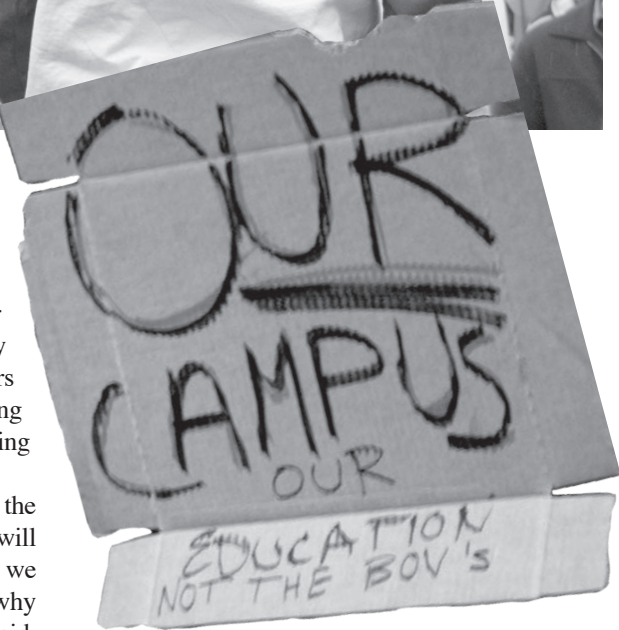 OUR
CAMPUS
OUR
EDUCATION
NOT THE BOV's
y
rs
ng
ing
the
will
we
why